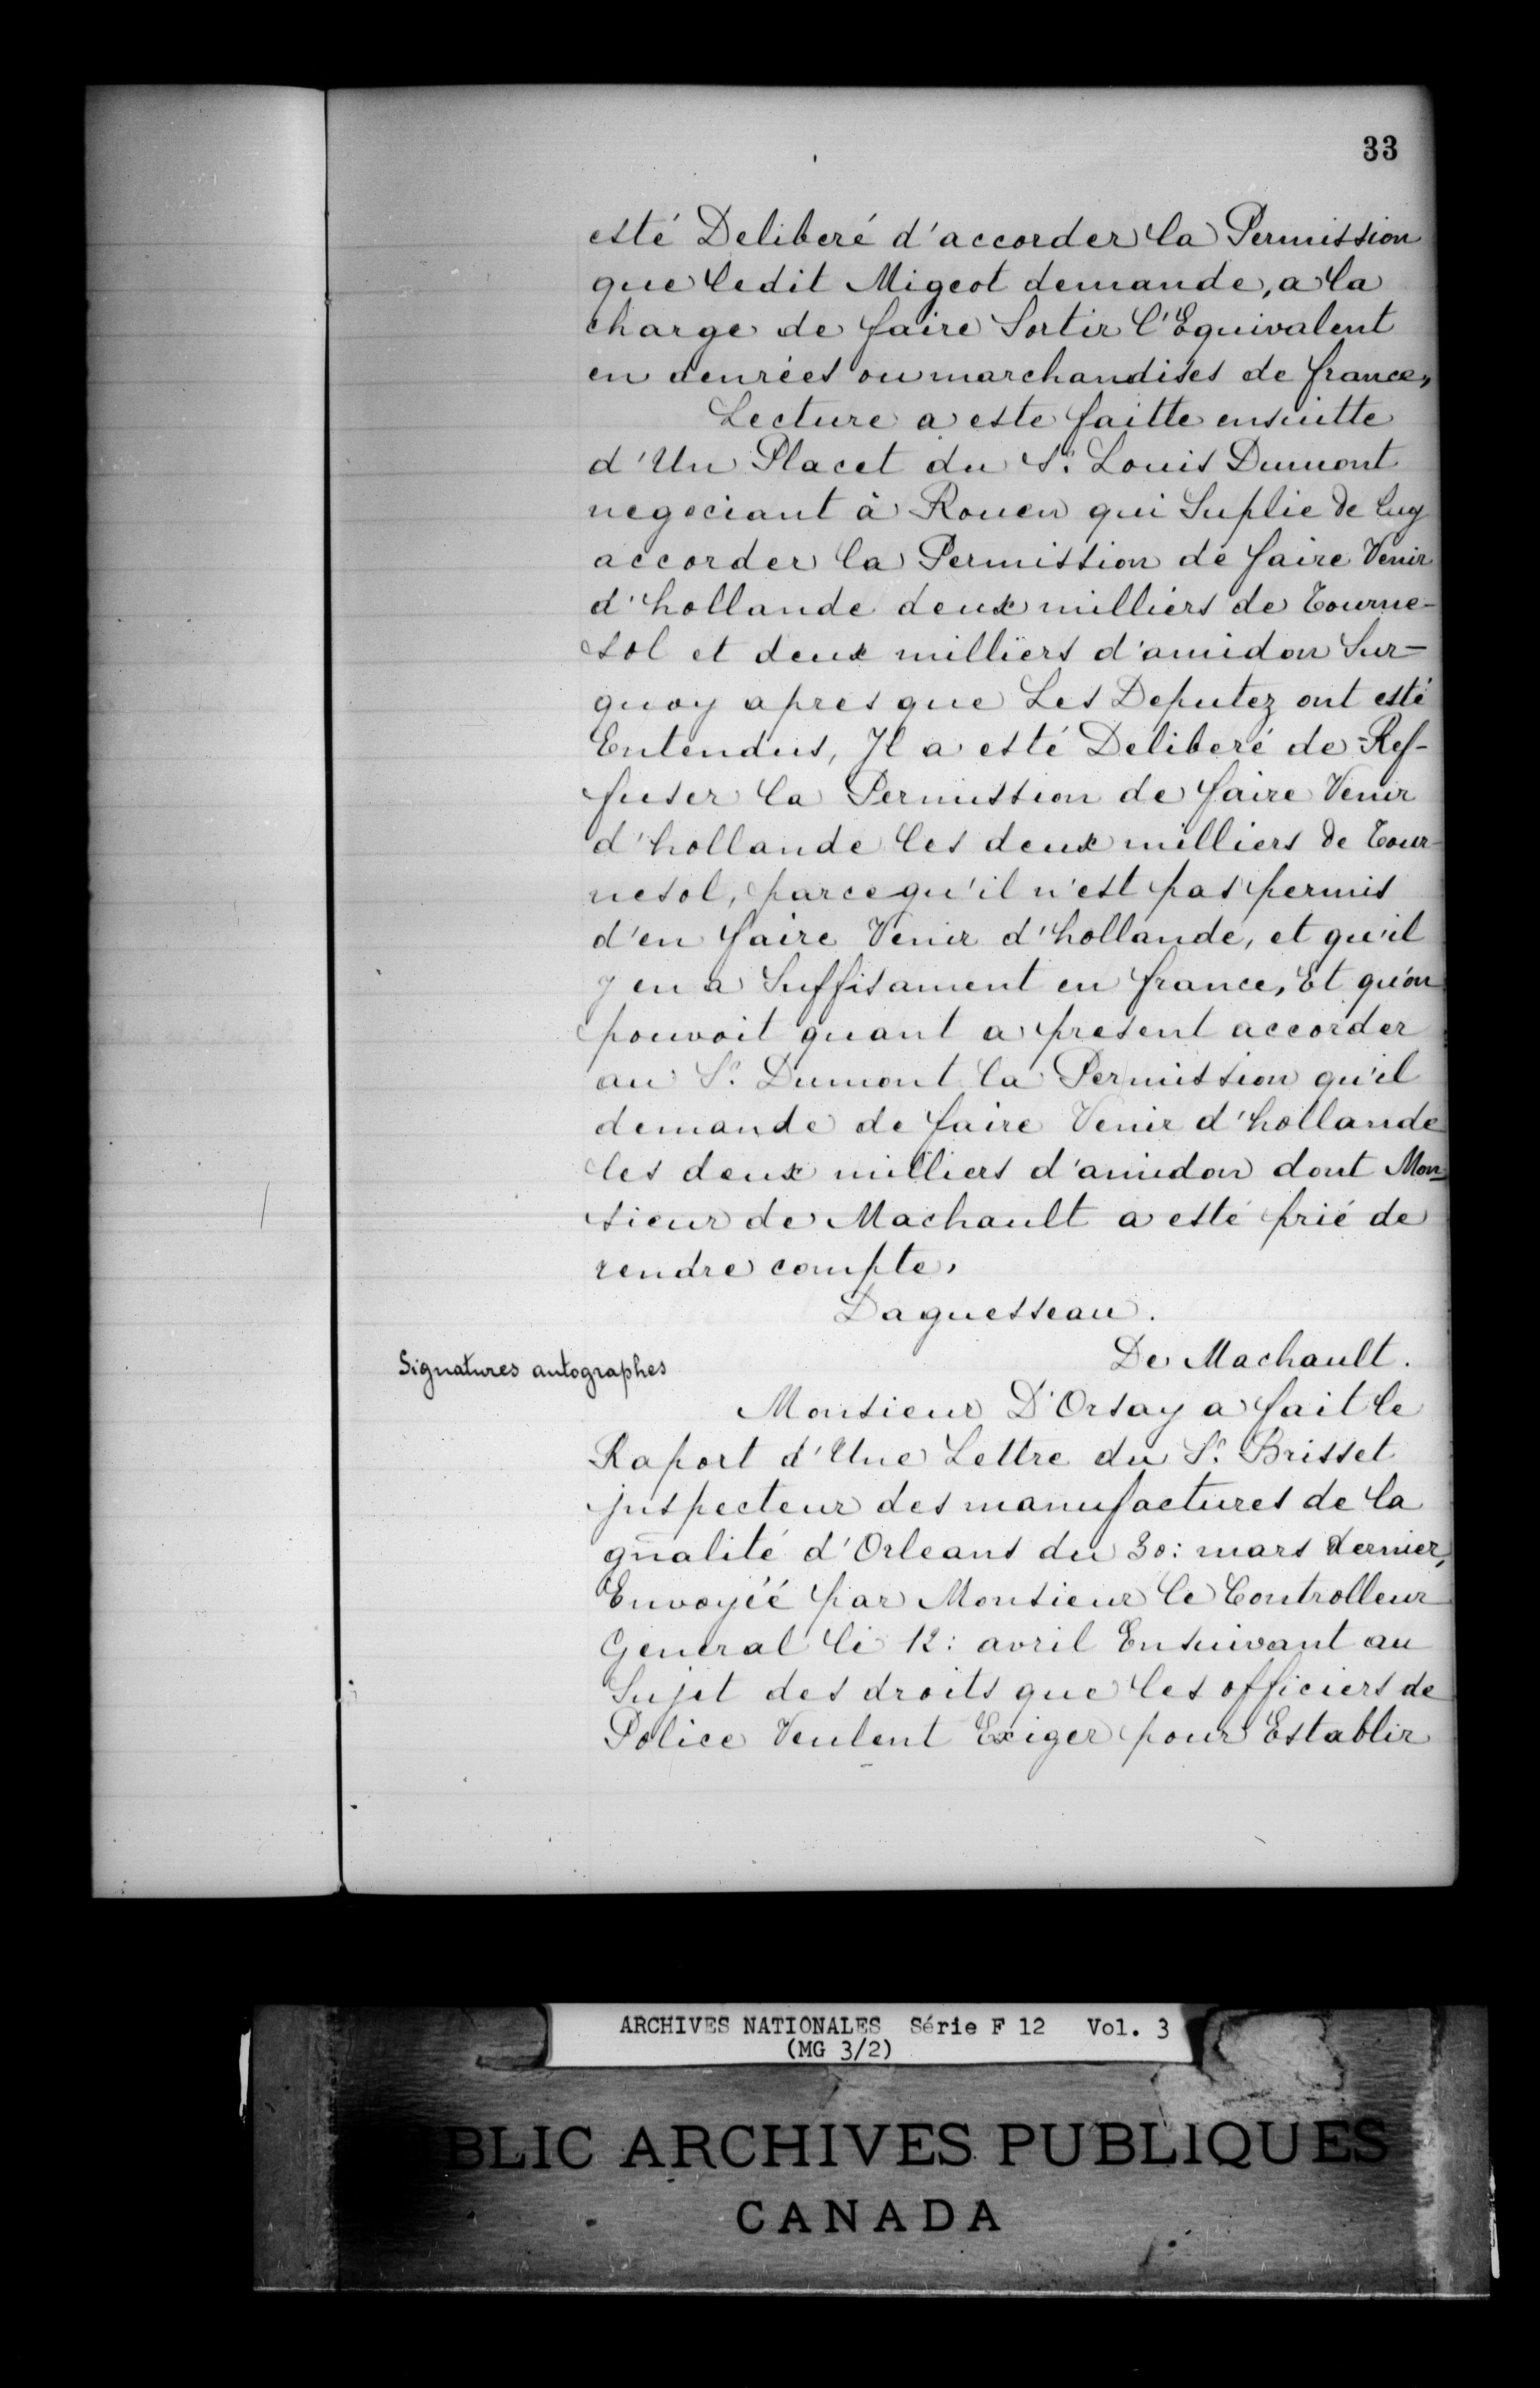 33
esté Deliberé d'accorder la Permission
que ledit Migeot demande, a la
charge de faire Sortir l'Equivalent
en denrées ou marchandises de france,
Lecture a este faitte ensuitte
d'Un Placet du Sr. Louis Dumont
negociant à Rouen qui Suplie de luy
accorder la Permission de faire Venir
d'hollande deux milliers de Tourne-
sol et deux milliers d'amidon Sur-
quoy apres que Les Deputez ont esté
Entendus, Jl a esté Deliberé de Ref-
fuser la Permission de faire Venir
d'hollande les deux milliers de Tour-
nesol, parcequ'il n'est pas permis
d'en faire Venir d'hollande, et qu'il
y en a Suffisament en france, Et qu'on
pouvoit quant a present accorder
au Sr. Dumont la Permission qu'il
demande de faire Venir d'hollande
les deux milliers d'amidon dont Mon-
sieur de Machault a esté prié de
rendre compte,
Daguesseau.
De Machault.
Signatures autographes
Monsieur D'Orsay a fait le
Raport d'Une Lettre du Sr. Brisset
jnspecteur des manufactures de la
gñalité d'Orleans du 30: mars dernier,
Envoyéé par Monsieur le Controlleur
General le 12: avril Ensuivant au
Sujet des droits que les officiers de
Police Veulent Exiger pour Establir
ARCHIVES NATIONALES Série F 12 Vol. 3
(MG 3/2)
BLIC ARCHIVES PUBLIQUES
CANADA